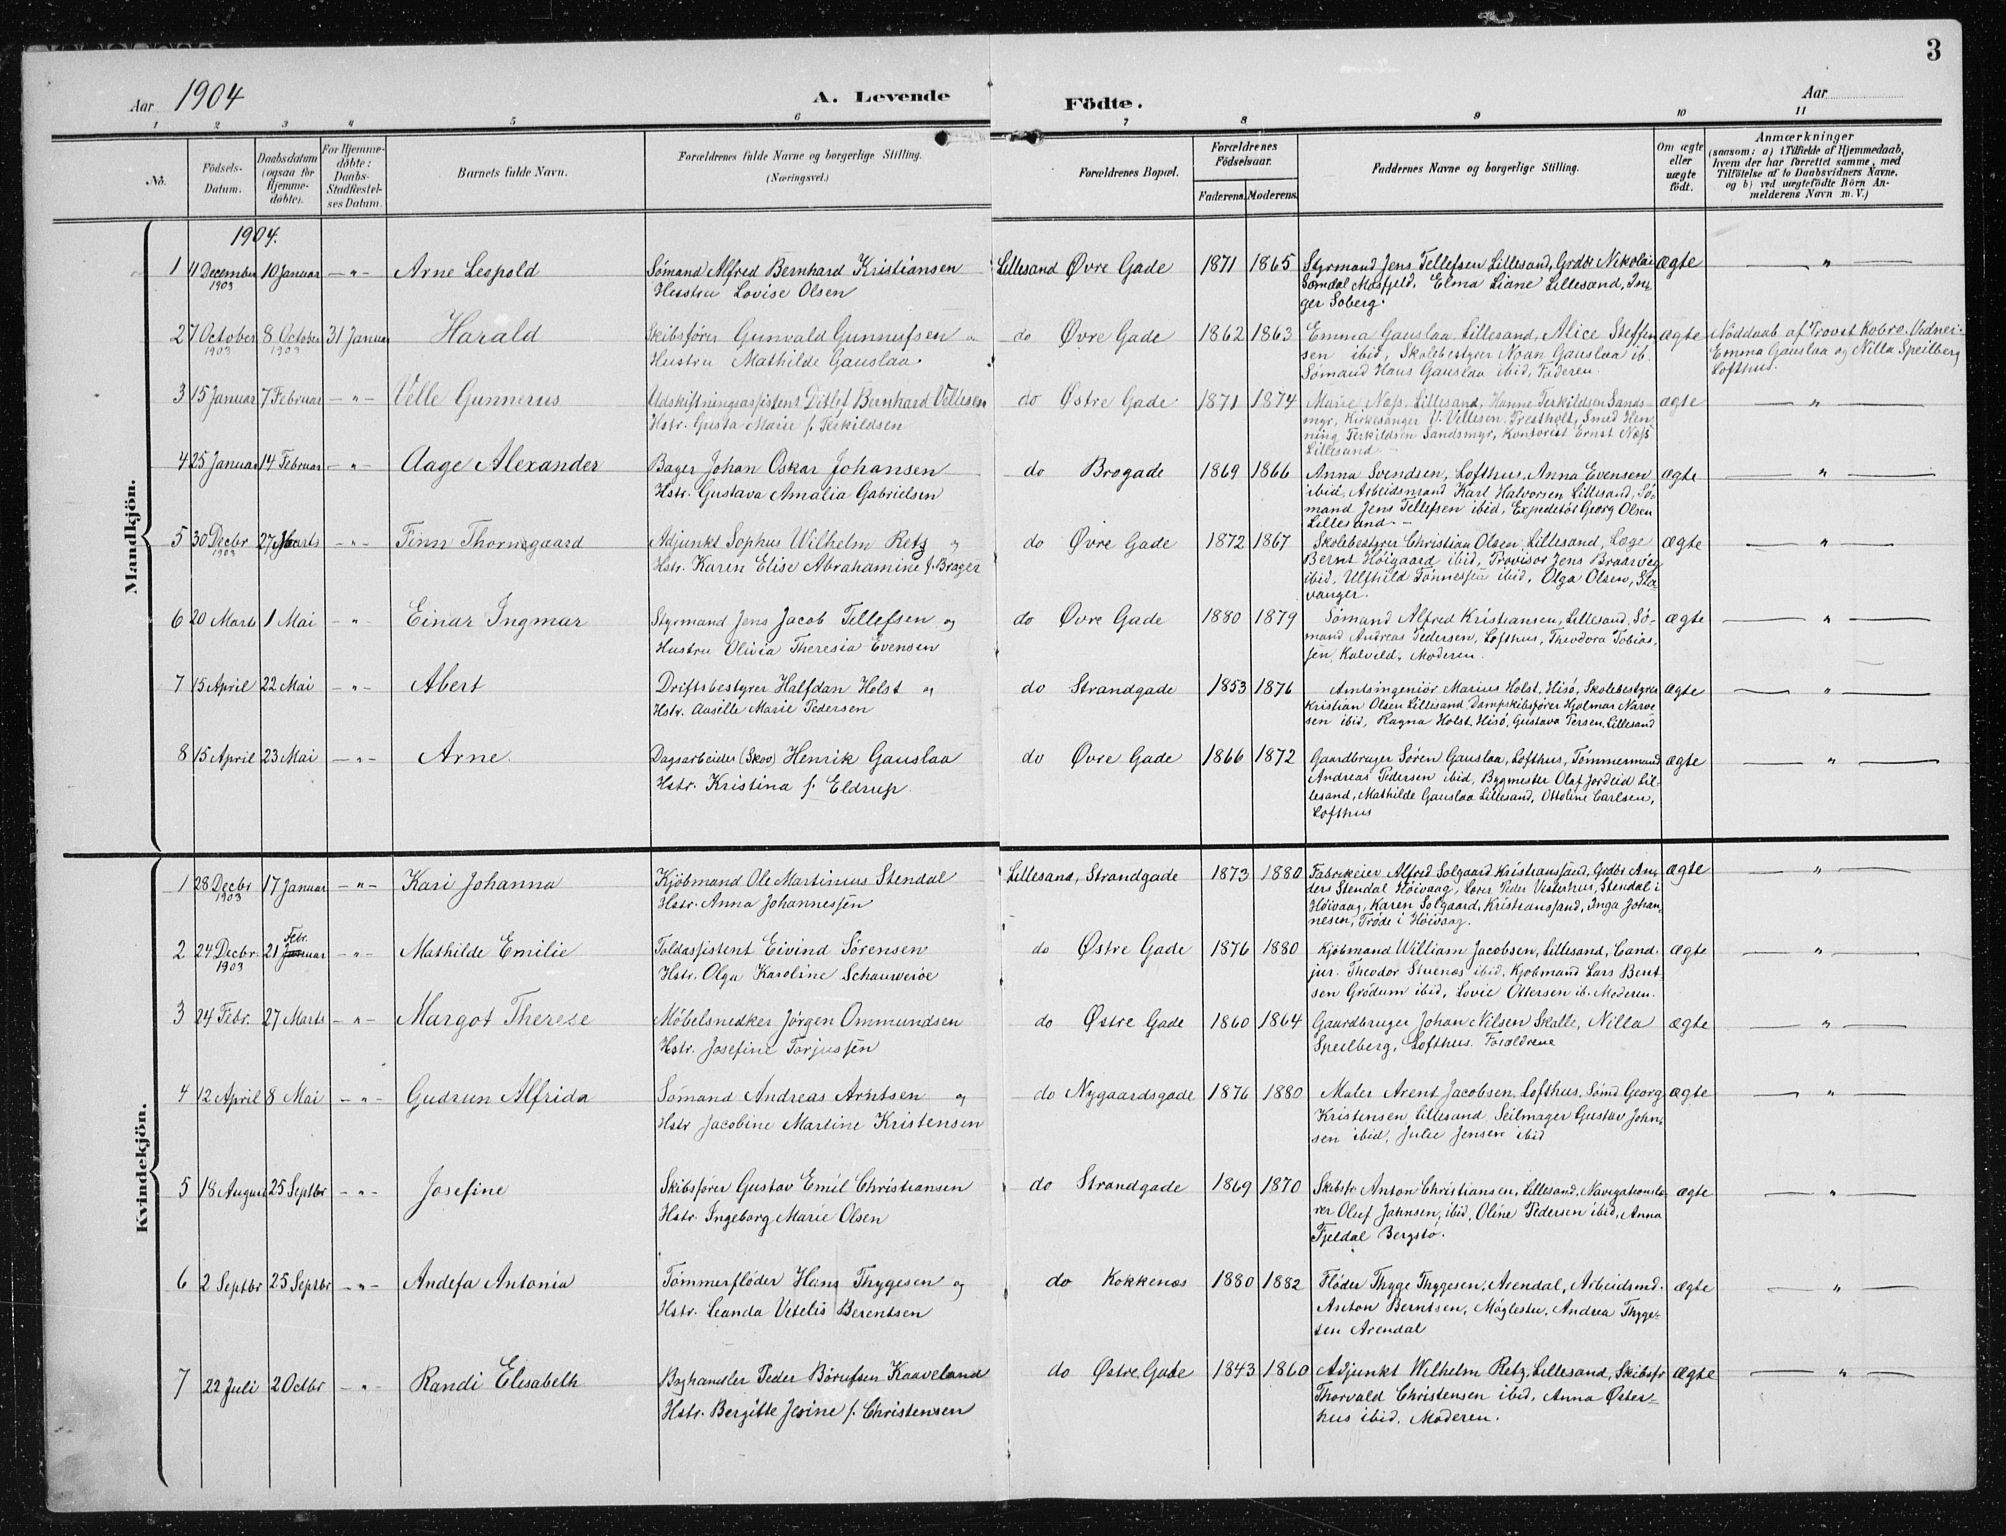 3
Aar 1904
A. Levende Födte.
Aar
1 2 3 4 5 6 7 8 9 10 11
No.
Födsels-Datum.
Daabsdatum (ogsaa for Hjemmedöbte).
For Hjemmedöbte: Daabs-Stadfæstelses Datum.
Barnets fulde Navn.
Forældrenes fulde Navne og borgerlige Stilling. (Næringsvei.)
Forældrenes Bopæl.
Forældrenes Födselsaar.
Faderens. Moderens.
Faddernes Navne og borgerlige Stilling.
Om ægte eller uægte födt.
Anmærkninger (saasom: a) i Tilfælde af Hjemmedaab, hvem der har forrettet samme, med Tilföielse af to Daabsvidners Navne, og b) ved uægtefödte Börn Anmelderens Navn m. V.)
Mandkjön.
1904.
1 11 December 1903 10 Januar — " — Arne Leopold
Sømand Alfred Bernhard Kristiansen
Hustru Lovise Olsen
Lillesand Øvre Gade 1871 1865
Styrmand Jens Tellefsen Lillesand, Grdbr Nikolai
Sømdal Mosfjeld, Elma Liane Lillesand, In-
ger Soberg.
ægte — " —
2 7 October 1903 8 October 1903 31 Januar Harald
Skibsfører Gunvald Gunnufsen o
Hustru Mathilde Gauslaa
do Øvre Gade 1862 1863
Emma Gauslaa Lillesand, Alice Steffen
sen ibid, Skolebestyrer Noan Gauslaa ib.
Sømand Hans Gauslaa ibid, Faderen.
ægte
Nøddaab af Provst Kobro. Vidner:
Emma Gauslaa og Nilla Speilberg
Lofthus.
3 15 Januar 7 Februar — " — Velle Gunnerus
Udskiftningsassistent Ditlef Bernhard Vellesen
Hstr. Gusta Marie f. Terkildsen
do Østre Gade 1871 1874
Marie Næss, Lillesand, Hanne Terkildsen Sands-
myr, Kirkesanger V. Vellesen, Trestholt, Smed Hen-
ning Terkildsen Sandsmyr, Kontorist Ernst Næss
Lillesand —
ægte — " —
4 25 Januar 14 Februar — " — Aage Alexander
Bager Johan Oskar Johansen
Hstr. Gustava Amalia Gabrielsen
do Brogade 1869 1866
Anna Svendsen, Lofthus, Anna Evensen
ibid, Arbeidsmand Karl Halvorsen Lillesand, Sø-
mand Jens Tellefsen ibid, Expeditør Georg Olsen
Lillesand —
ægte — " —
5 30 Decbr 1903 27 Marts — " — Finn Thornsgaard
Adjunkt Sophus Wilhelm Retz o
Hstr. Karen Elise Abrahamine f. Brager
do Øvre Gade 1872 1867
Skolebestyrer Christian Olsen, Lillesand, Læge
Bernt Høigaard ibid, Provisor Jens Braarvig
ibid, Ulfhild Tønnessen ibid, Olga Olsen, Sta-
vanger.
ægte — " —
6 20 Marts 1 Mai — " — Einar Ingmar
Styrmand Jens Jacob Tellefsen og
Hustru Olivia Theresia Evensen
do Øvre Gade 1880 1879
Sømand Alfred Kristiansen, Lillesand, Sø-
mand Andreas Pedersen, Lofthus, Theodora Tobias-
sen, Kalvild, Moderen.
ægte — " —
7 15 April 22 Mai — " — Abert
Driftsbestyrer Halfdan Holst o
Hstr. Marie Pedersen
do Strandgade 1853 1876
Amtsingeniør Marius Holst, Hisø, Skolebestyrer
Kristian Olsen Lillesand, Dampskibsfører Hjalmar Narve
sen ibid, Ragna Holst, Hisø, Gustava Tersen, Lillesand
ægte — " —
8 15 April 23 Mai — " — Arne
Dagsarbeider (Skov) Henrik Gauslaa
Hstr. Kristina f. Eldrup.
do Øvre Gade 1866 1872
Gaardbruger Søren Gauslaa, Lofthus, Tømmermand
Andreas Pedersen ibid, Bygmester Olaf Jordeid Lil-
lesand, Mathilde Gauslaa Lillesand, Ottoline Carlsen,
Lofthus
ægte — " —
Kvindekjön.
1 28 Decbr 1903 17 Januar — " — Kari Johanna
Kjøbmand Ole Martinius Stendal
Hstr. Anna Johannessen
Lillesand, Strandgade 1873 1880
Fabrikeier Alfred Solgaard Kristianssand, Grdbr An-
ders Stendal Høivaag, Peder Vesterhus, Stendal i
Høivaag, Karen Solgaard, Kristianssand, Inga Johan-
nesen, Trøde i Høivaag.
ægte — " —
2 24 Decbr. 1903 21 Januar Febr. — " — Mathilde Emilie
Toldassistent Eivind Sørensen
Hstr. Olga Karoline Schauweroe
do Østre Gade 1876 1880
Kjøbmand William Jacobsen, Lillesand, Cand.
jur. Theodor Stuenæs ibid, Kjøbmand Lars Bent
sen Grødum ibid, Lovie Ottersen ib. Moderen.
ægte — " —
3 24 Febr. 27 Marts — " — Margot Therese
Møbelsnedker Jørgen Ommundsen
Hstr. Josefine Torjussen
do Østre Gade 1860 1864
Gaardbruger Johan Nilsen Skalle, Nilla
Speilberg, Lofthus. Forældrene
ægte — " —
4 12 April 8 Mai — " — Gudrun Alfrida
Sømand Andreas Arntsen og
Hstr Jacobine Martine Kristensen
do Nygaardsgade 1876 1880
Maler Arent Jacobsen, Lofthus. Sømd Georg
Kristensen Lillesand Seilmager Gustav John-
sen ibid, Julie Jensen ibid
ægte — " —
5 18 August 25 Septbr — " — Josefine
Skibsfører Gustav Emil Christiansen
Hstr. Ingeborg Marie Olsen
do Strandgade 1869 1870
Skibsfr Anton Christiansen, Lillesand, Navigationslæ-
rer Oluf Jahnsen, ibid, Oline Pedersen ibid, Anna
Fjeldal Bergstø.
ægte — " —
6 2 Septbr 25 Septbr — " — Andefa Antonia
Tømmerfløder Hans Thygesen og
Hstr. Leanda Vitelis Berentsen
do Kokkenæs 1880 1882
Fløder Thygesen, Arendal, Arbeidsmd.
Anton Berntsen, Møglestu, Andrea Thyge-
sen Arendal
ægte — " —
7 22 Juli 2 Octbr — " — Randi Elisabeth
Boghandler Peder Børufsen Kaaveland
Hstr. Bergitte Jesine f. Christensen
do Østre Gade 1843 1860
Adjunkt Wilhelm Retz, Lillesand, Skibsfr
Thorvald Christensen ibid, Anna Øster-
hus ibid. Moderen.
ægte — " —